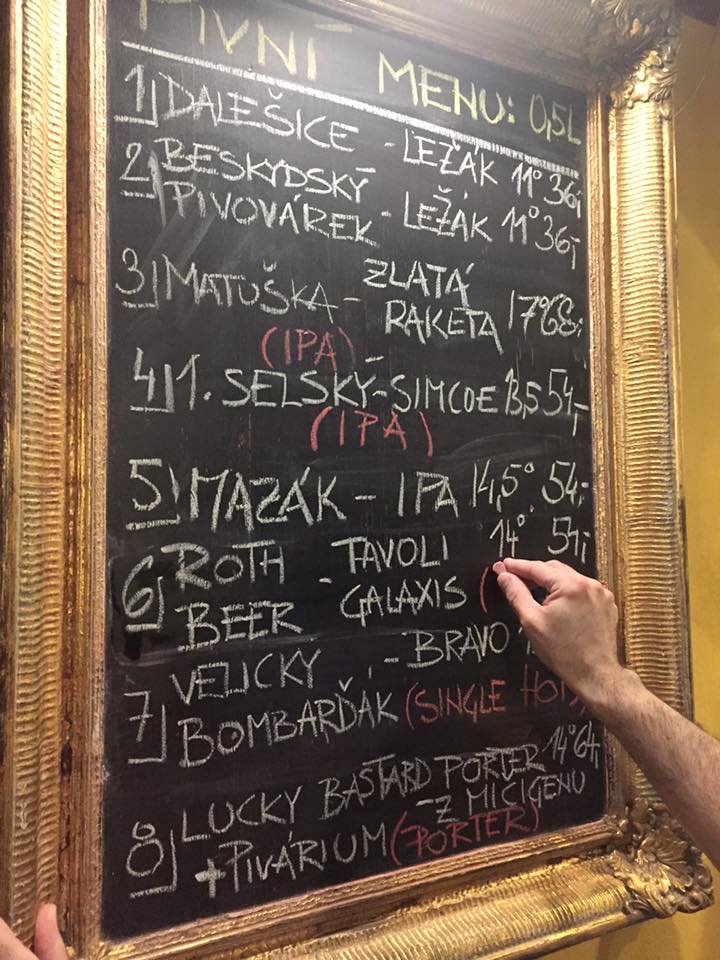 PIVNÍ MENU: 0,5L
1) DALEŠICE - LEŽÁK 11° 36,-
2) BESKYDSKÝ
PIVOVÁREK - LEŽÁK 11° 36,-
3) MATUŠKA - ZLATÁ
RAKETA 17° 68,-
(IPA)
4) 1. SELSKÝ - SIMCOE 13,5 54,-
(IPA)
5) MAZÁK - IPA 14,5° 54,-
6) ROTH - TAVOLI 14°
BEER GALAXIS (
7) VELICKÝ - BRAVO
BOMBARĎÁK (SINGLE HOP)
8) LUCKY BASTARD PORTER 14° 64,-
+ PIVÁRIUM - Z MICIGENU
(PORTER)